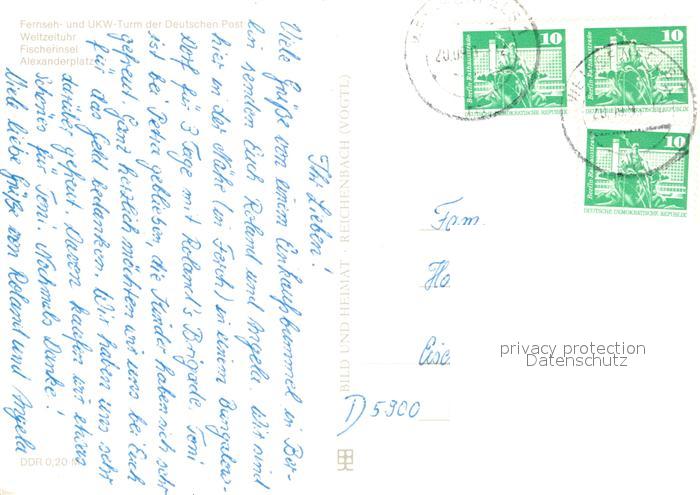 Fernseh- und UKW-Turm der Deutschen Post
Weltzeituhr
Fischerinsel
Alexanderplatz
Ihr Lieben!
Viele Grüße von einem Einkaufbummel in Ber-
lin senden Euch Roland und Angela. Wir sind
hier in der Nähe (in Forch) in einem Bungalow-
Dorf für 3 Tage mit Roland's Brigade. Toni
ist bei Petra geblieben, die Kinder haben sich sehr
gefreut. Ganz herzlich möchten wir uns bei Euch
für das Geld bedanken. Wir haben uns sehr
darüber gefreut. Davon kaufen wir etwas
Schönes für Toni. Nochmals Danke!
Viele liebe Grüße von Roland und Angela
DDR 0,20 M
BILD UND HEIMAT · REICHENBACH (VOGTL)
10
Berlin Rathausstraße
DEUTSCHE DEMOKRATISCHE REPUBLIK
10
Berlin Rathausstraße
DEUTSCHE DEMOKRATISCHE REPUBLIK
10
Berlin Rathausstraße
DEUTSCHE DEMOKRATISCHE REPUBLIK
Fam.
Ho.
Eise.
D 5900
privacy protection
Datenschutz